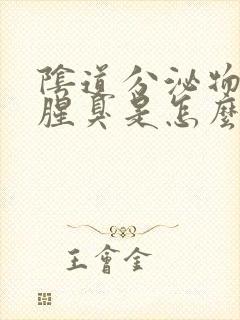 陰道分泌物
腥臭是怎麼
王會金